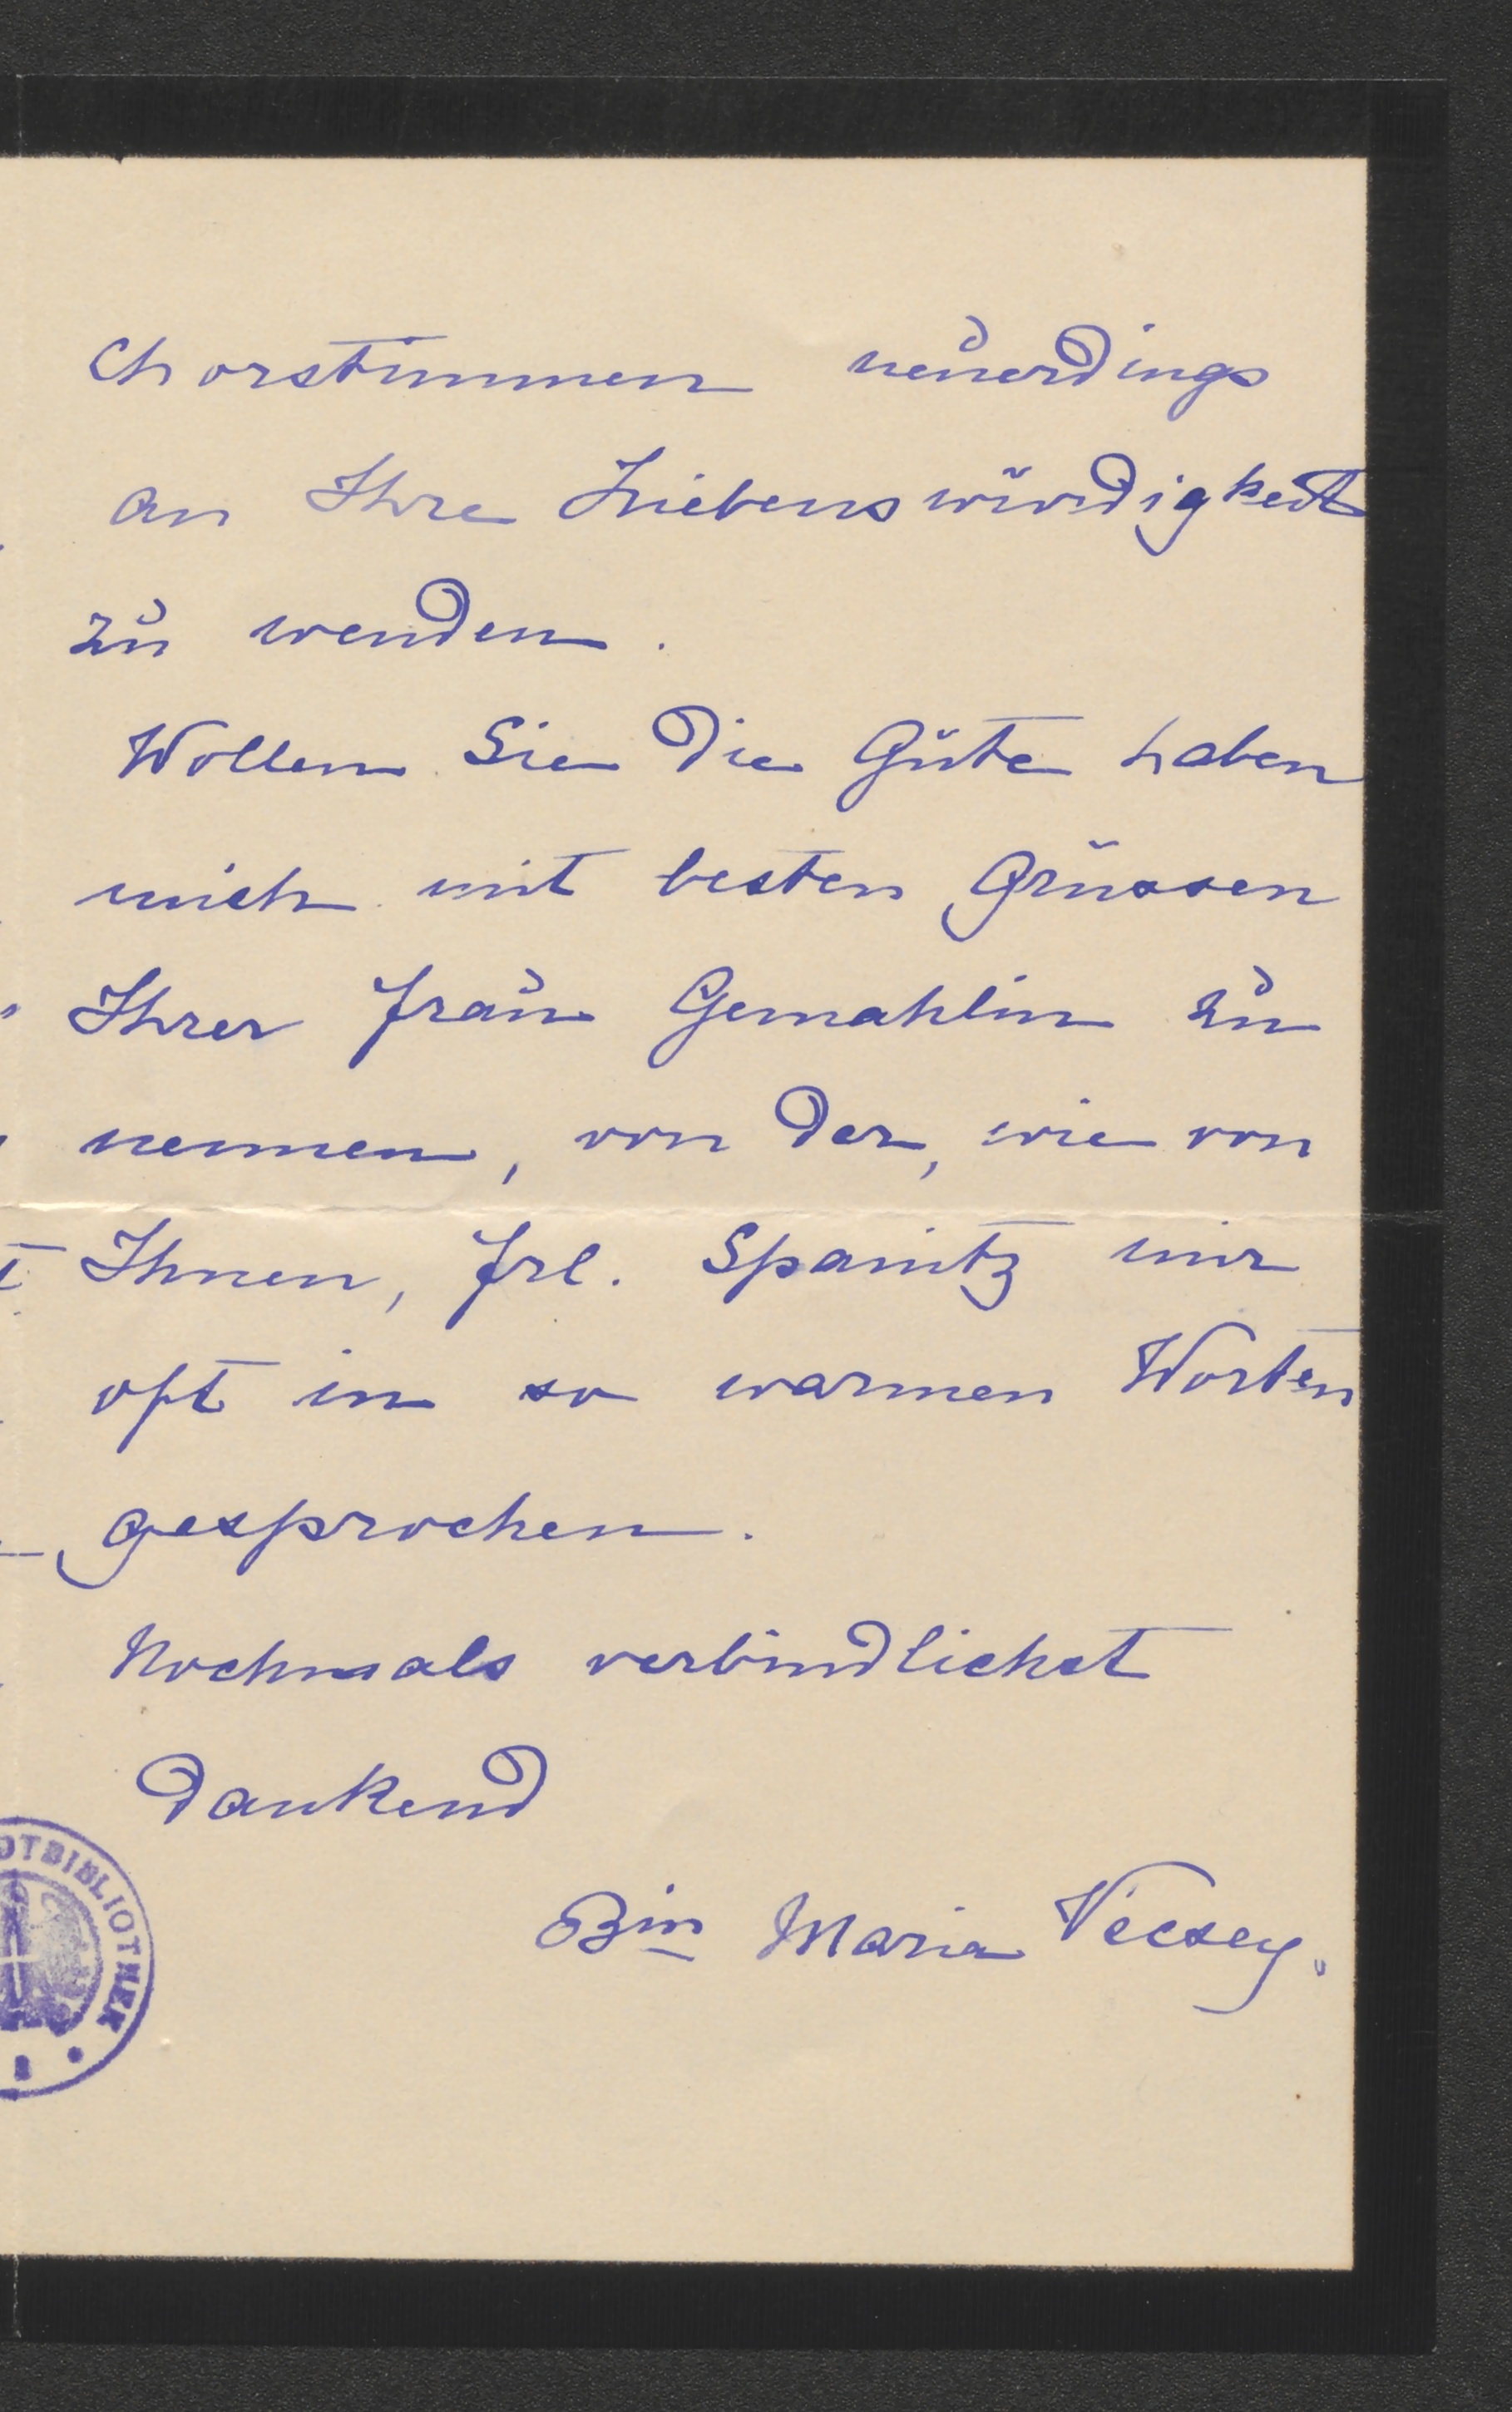 Chorstimmen neuerdings
an Ihre Liebenswürdigkeit
zu wenden.
Wollen Sie die Güte haben
mich mit besten Grüssen
Ihrer Frau Gemahlin zu
nennen, von der, wie von
Ihnen, Frl. Spanitz mir
oft in so warmen Worten
gesprochen.
Nochmals verbindlichst
dankend
Bin Maria Vecsey.
OTBIBLIOTHEK